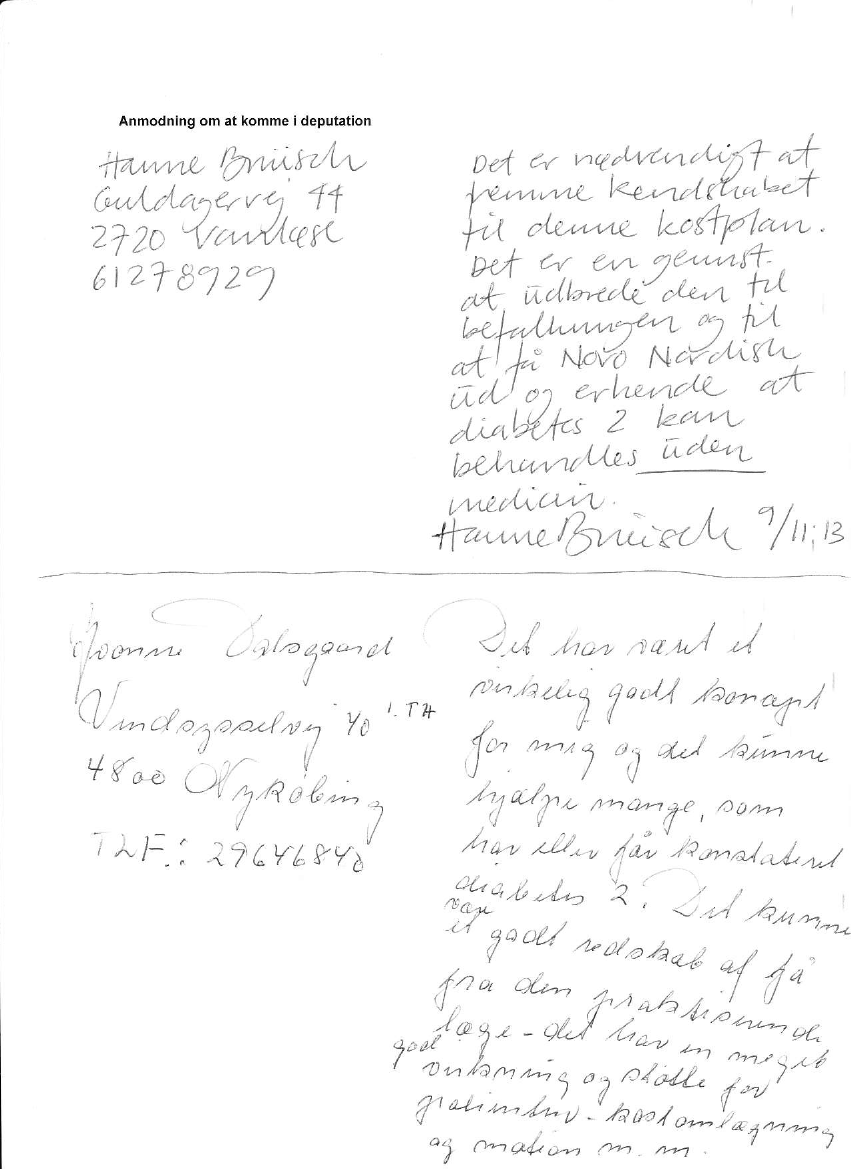 Anmodning om at komme i deputation
Hanne Bruisch
Guldagervej 44
2720 Vanløse
61278929
Det er nødvendigt at
fremme kendskabet
til denne kostplan.
Det er en geunst.
at udbrede den til
befolkningen og til
at få Novo Nordisk
ud og erkende at
diabetes 2 kan
behandles uden
medicin.
Hanne Bruisch 9/11;13
Yvonne Dalsgaard
Vendsysselvej 40 1. TH
4800 Nykøbing
TLF.: 29646840
Det har været et
virkelig godt koncept
for mig og det kunne
hjælpe mange, som
har eller får konstateret
diabetes 2. Det kunne
være
et godt redskab at få
fra den praktiserende
læge - det har en meget
god
virkning og støtte for
patienter - kostomlægning
og motion m.m.